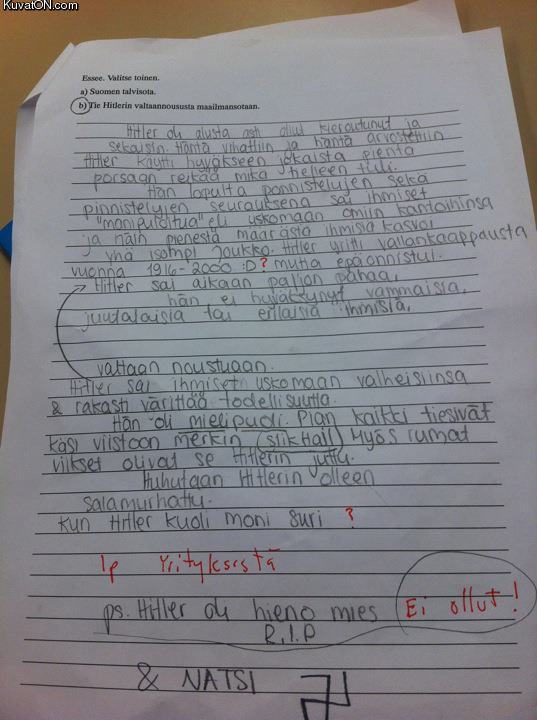 KuvatON.com
Essee. Valitse toinen.
a) Suomen talvisota.
b) Tie Hitlerin valtaannoususta maailmansotaan.
Hitler oli alusta asti ollut kieroutunut ja
sekaisin. Häntä vihattiin ja häntä arvostettiin
Hitler käytti hyväkseen jokaista pientä
porsaan reikää mikä helleen tuli.
Hän lopulta ponnistelujen sekä
pinnistelyjen seurauksena sai ihmiset
"manipuloitua" eli uskomaan omiin kantoihinsa
ja näin pienestä määrästä ihmisiä kasvoi
yhä isompi joukko. Hitler yritti vallankaappausta
vuonna 1916-2000 :D? mutta epäonnistui.
Hitler sai aikaan paljon pahaa,
hän ei hyväksynyt vammaisia,
juutalaisia tai erilaisia ihmisiä.
valtaan noustuaan.
Hitler sai ihmiset uskomaan valheisiinsa
& rakasti värittää todellisuutta.
Hän oli mielipuoli. Pian kaikki tiesivät
käsi viistoon merkin (siikHail) Myös rumat
viikset olivat se Hitlerin juttu.
Huhutaan Hitlerin olleen
salamurhattu.
Kun Hitler kuoli moni suri ?
1p Yrityksestä
ps. Hitler oli hieno mies Ei ollut!
R.I.P
& NATSI